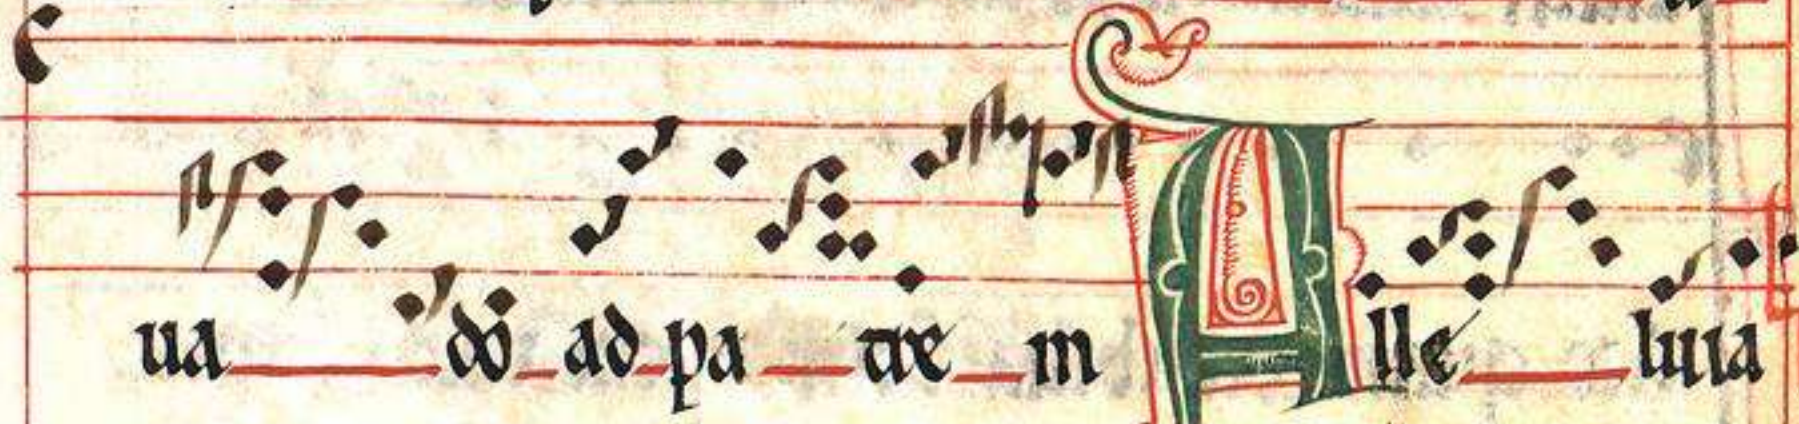 ua do ad pa tre m Alle luia